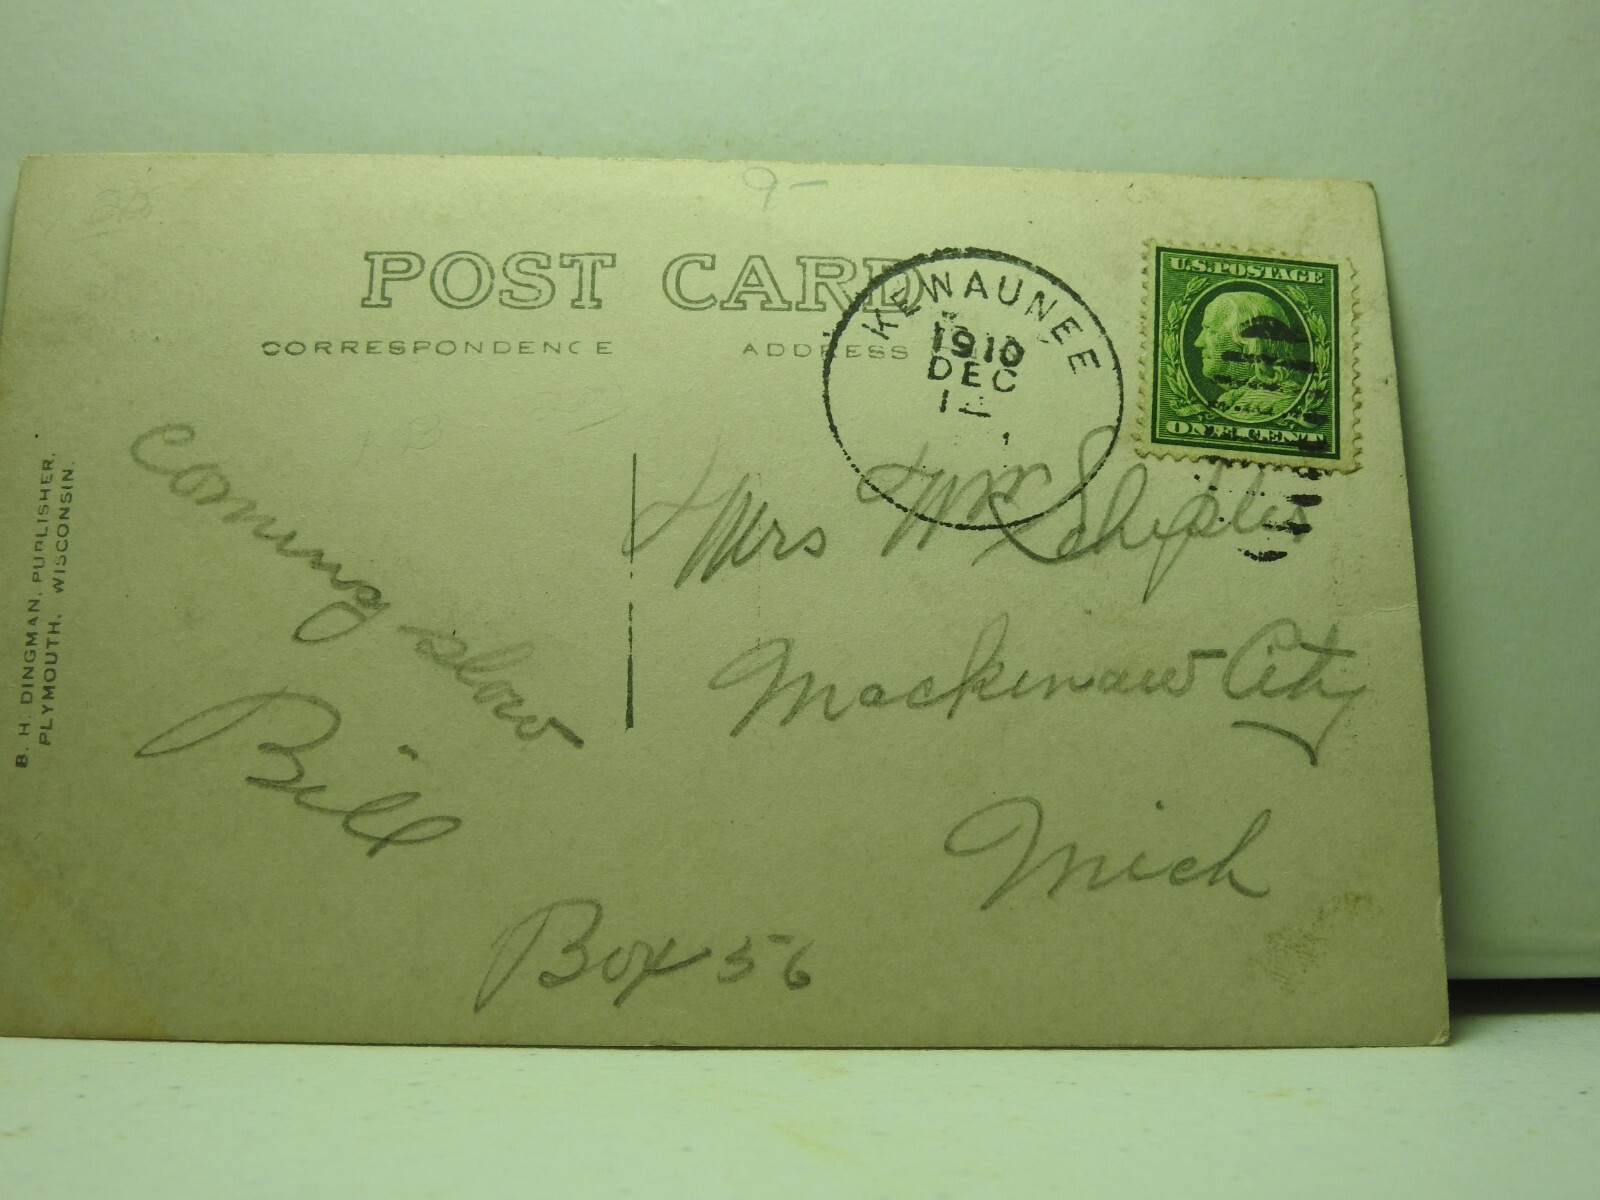 9-
POST CARD
CORRESPONDENCE
ADDRESS
KEWAUNEE
1910
DEC
U.S. POSTAGE
ONE CENT
B. H. DINGMAN, PUBLISHER,
PLYMOUTH, WISCONSIN.
Coming slow
Bill
Mrs Wm
Mackinaw City
Mich
Box 56